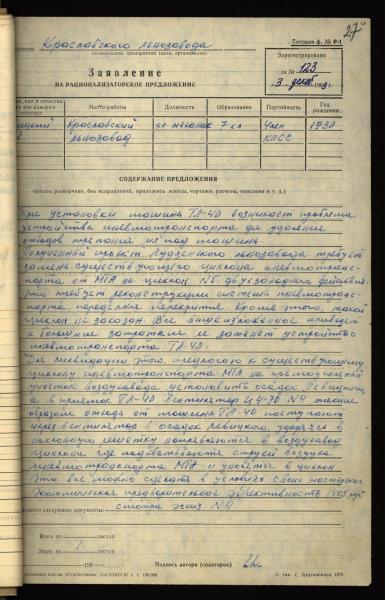 27
Краславского льнозавода
Типовая ф. № Р-1
Заявление
НА РАЦИОНАЛИЗАТОРСКОЕ ПРЕДЛОЖЕНИЕ
Зарегистрировано
за № 123
3 декаб. 19
Место работы
Должность
Образование
Партийность
Год рождения
Краславский льнозавод
механик
7 кл
Член КПСС
1930
СОДЕРЖАНИЕ ПРЕДЛОЖЕНИЯ
(писать разборчиво, без исправлений, приложить эскизы, чертежи, расчеты, описания и т. д.)
При установки машины ТЛ-40 возникает проблема
устройства пневмотранспорта для удаления
отходов трепания из под машины
Полученный проект Лудзенского льнозавода требует
замена существующего циклона пневмотранс-
порта от МТА на циклон №5 двухзаходного действия
Это требует реконструкции системы пневмотранс-
порта переделки перекрытия Кроме этого такой
циклон по заказам Все вышеизложенное приведет
к большим затратам и затянет устройство
пневмотранспорта ТЛ-40.
Для ликвидации этого предлогаю к существующему
циклону пневмотранспорта МТА на прямолинейный
участок воздуховода установить осадок Левицкого,
а в приямок ТЛ-40 вентилятор Ц4-70 №4 таким
образом отходы от машины ТЛ-40 поступают
через вентилятор в осадок Левицкого, ударяясь в
наклонную решетку попадаются в воздуховод
циклона где подхватываются струей воздуха
пневмотранспорта МТА и уносятся в циклон
Это все можно сделать в условиях своих мастерских
Экономическая предварительная эффективность 1405 руб
смотри эскиз №1
следующие документы:
Всего на листах
Эскиз на 1 листах
196
Подпись автора (соавторов)